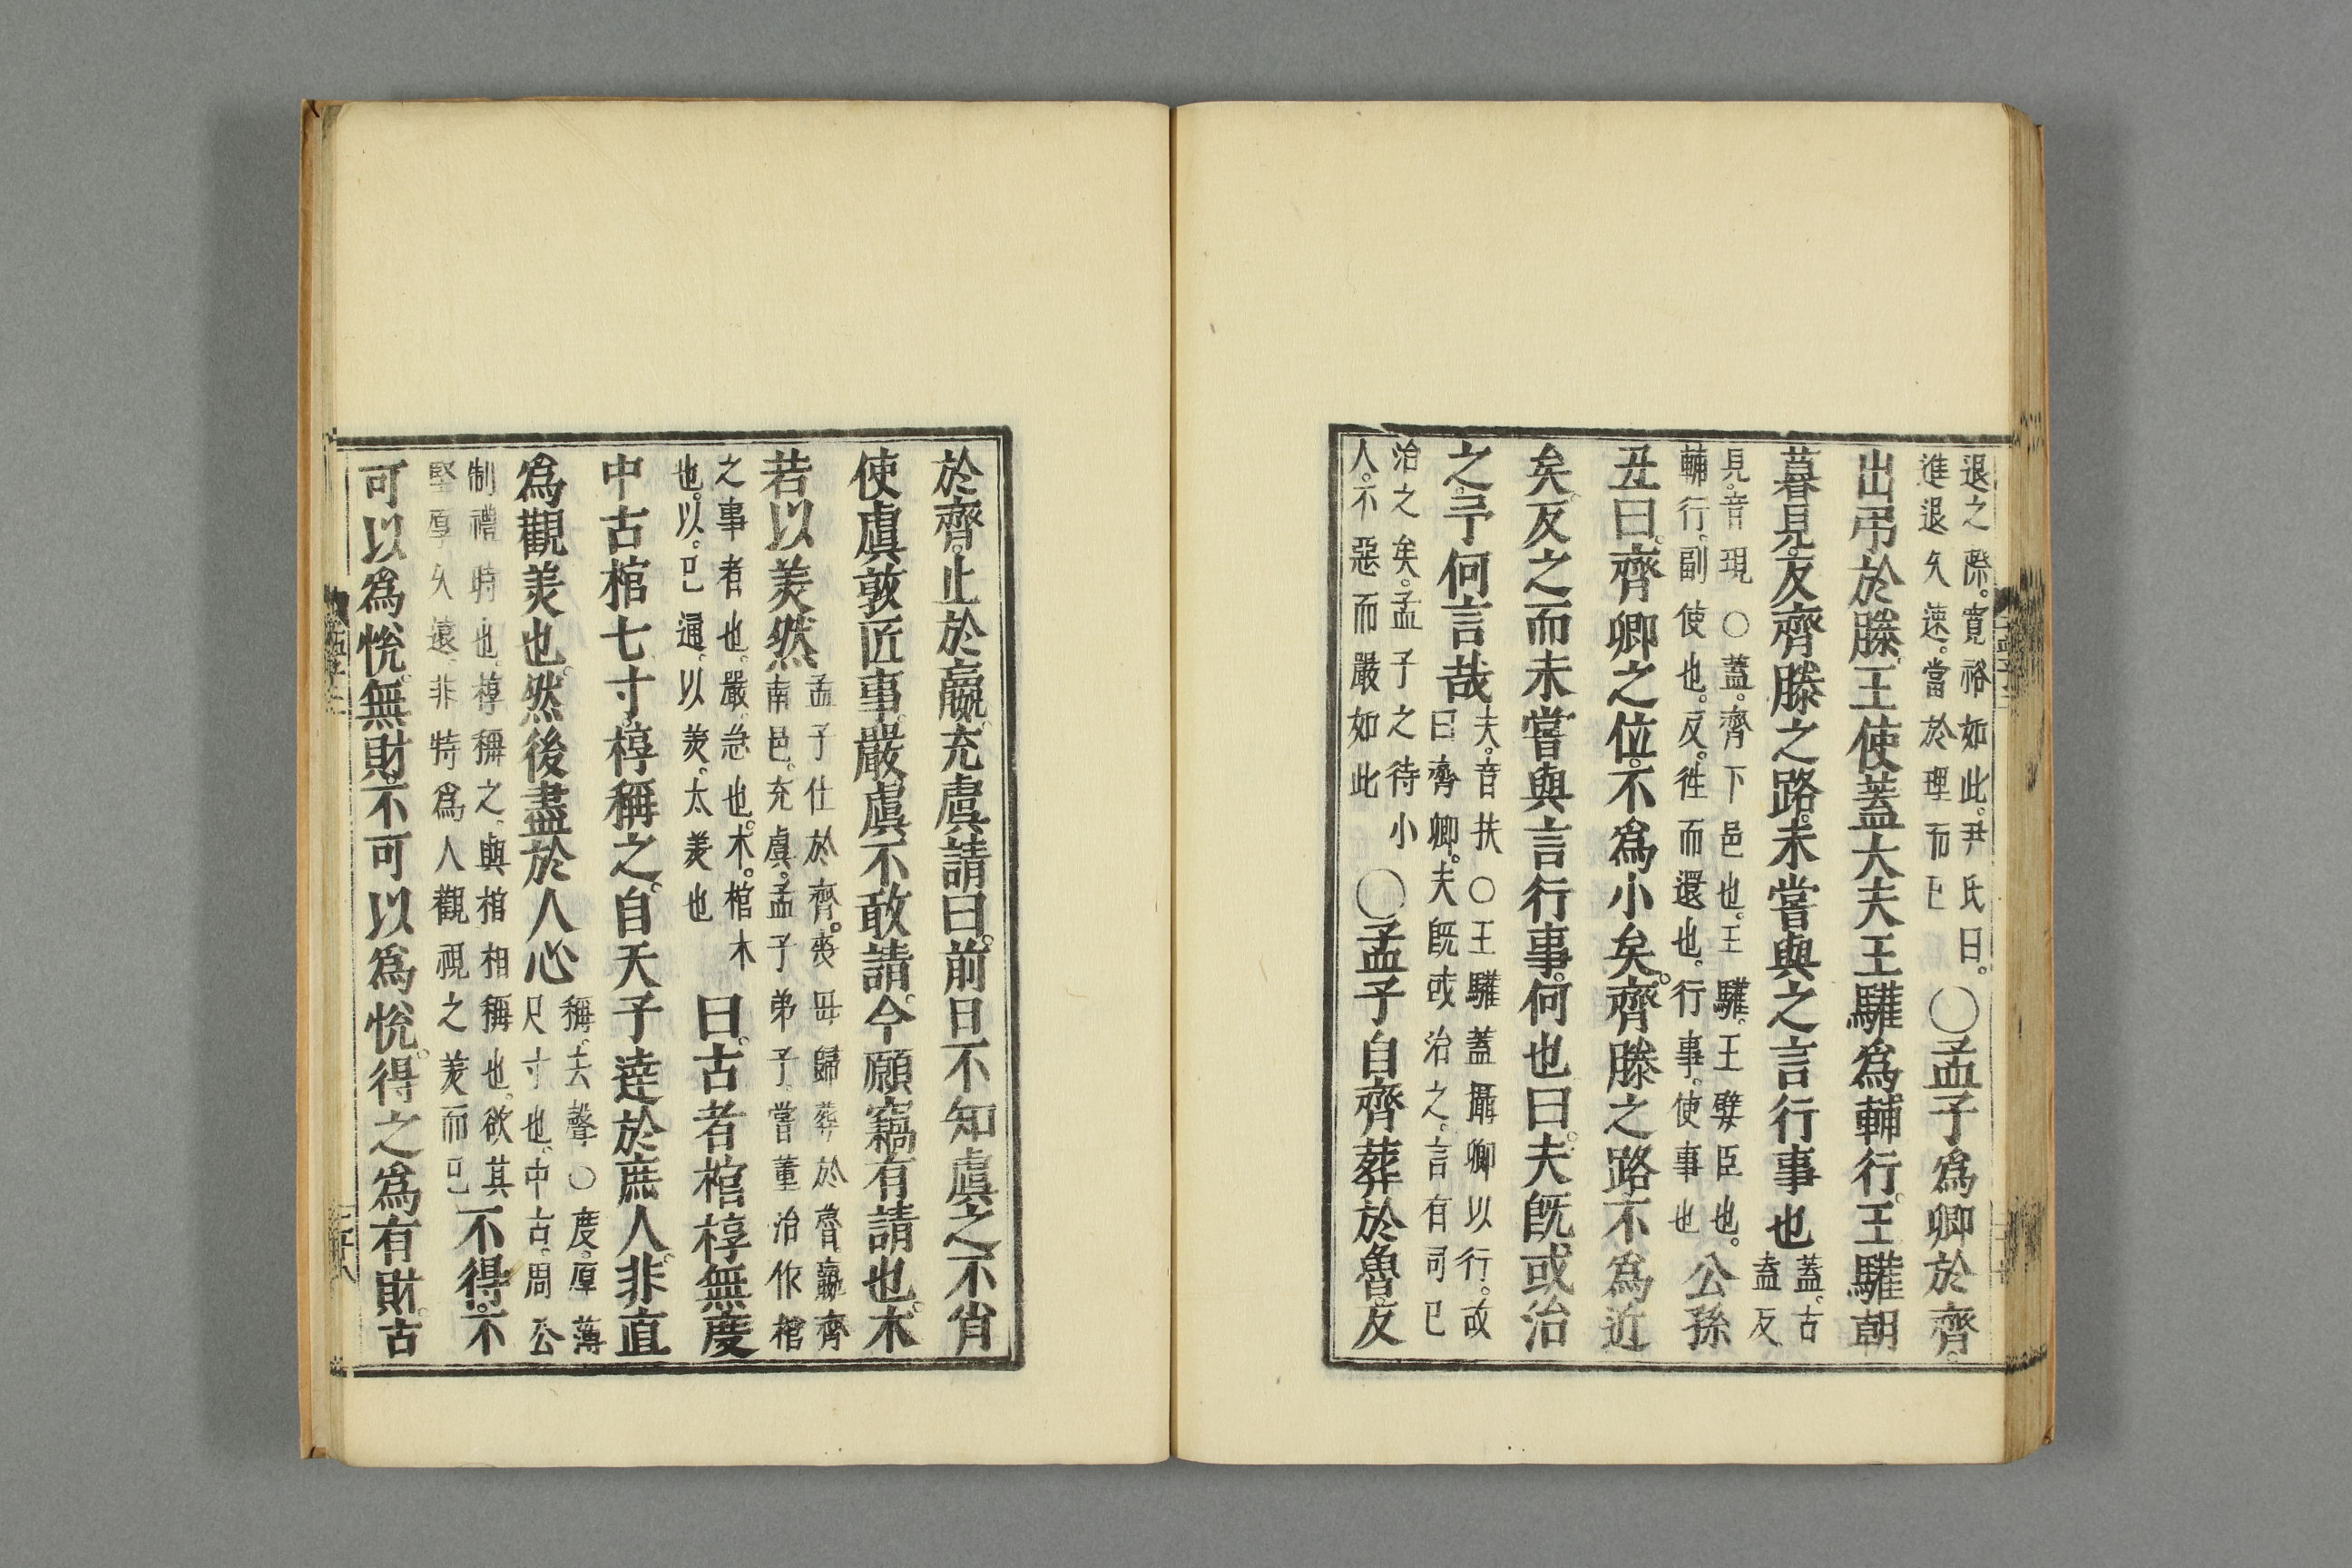 退之際。寬裕如此。尹氏曰。
進退久速。當於理而已
○孟子爲卿於齊。
出弔於滕。王使蓋大夫王驩爲輔行。王驩朝
暮見。反齊滕之路。未嘗與之言行事也
蓋。古
盍反
見。音現○蓋。齊下邑也。王驩。王嬖臣也。
輔行。副使也。反。往而還也。行事。使事也
公孫
丑曰。齊卿之位。不爲小矣。齊滕之路不爲近
矣。反之而未嘗與言行事。何也曰。夫旣或治
之。予何言哉
夫。音扶○王驩蓋攝卿以行。故
曰齊卿。夫旣或治之。言有司已
治之矣。孟子之待小
人。不惡而嚴如此
○孟子自齊葬於魯。反
於齊。止於嬴。充虞請曰。前日不知虞之不肖
使虞敦匠事。嚴。虞不敢請。今願竊有請也。木
若以美然
孟子仕於齊。喪毋歸葬於魯。嬴。齊
南邑。充虞。孟子弟子。嘗董治作棺
之事者也。嚴。急也。木。棺木
也。以。已通。以美。太美也
曰。古者棺椁無度
中古棺七寸。椁稱之。自天子達於庶人。非直
爲觀美也。然後盡於人心
稱。去聲○度。厚薄
尺寸也。中古。周公
制禮時也。椁稱之。與棺相稱也。欲其
堅厚久遠。非特爲人觀視之美而已
不得。不
可以爲悅。無財。不可以爲悅。得之爲有財。古